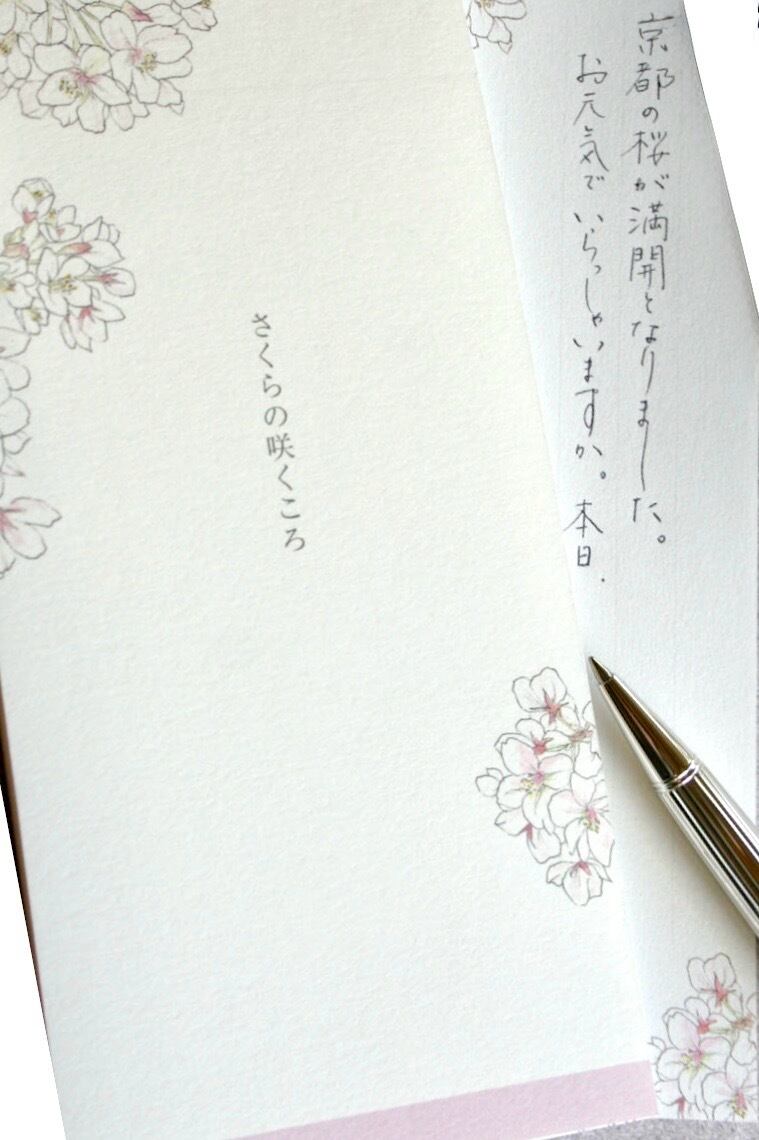 京都の桜が満開となりました。
お元気でいらっしゃいますか。本日.
さくらの咲くころ